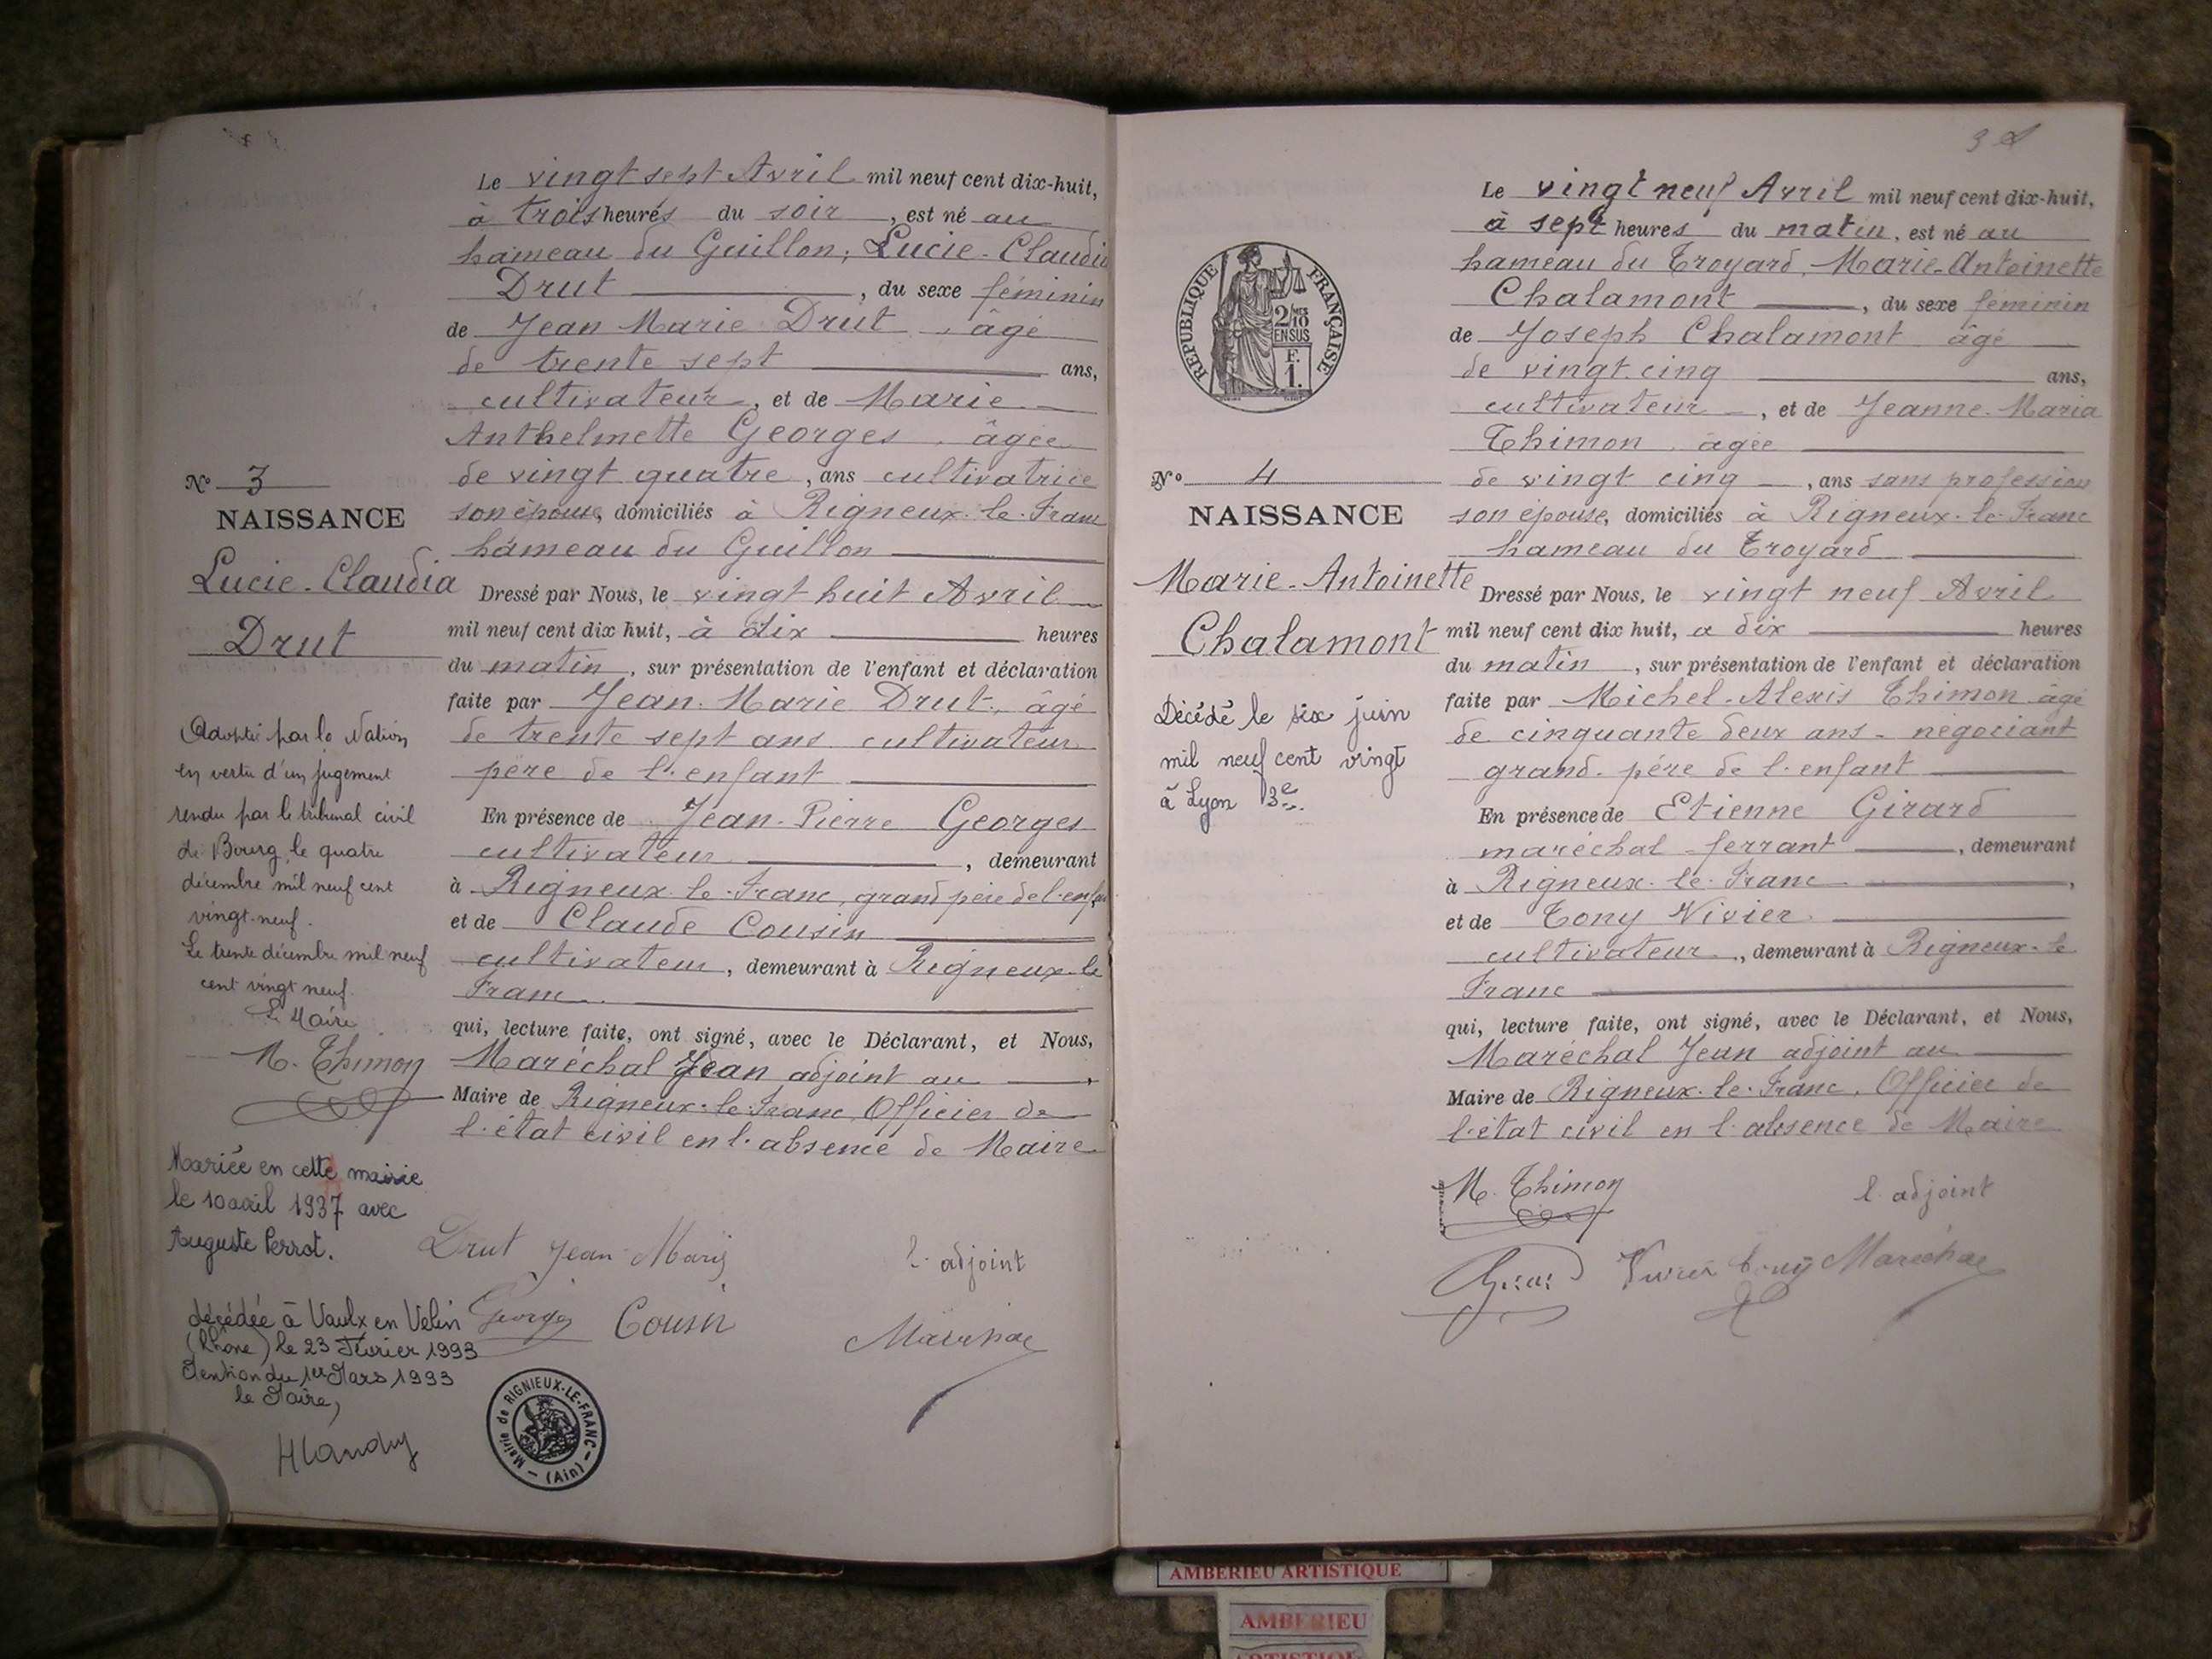 Le vingt sept Avril mil neuf cent dix-huit,
à trois heures du soir, est né au
hameau du Guillon, Lucie-Claudia
Drut, du sexe féminin
de Jean Marie Drut, âgé
de trente sept ans,
cultivateur, et de Marie
Anthelmette Georges, âgée
de vingt quatre, ans cultivatrice
son épouse, domiciliés à Rigneux-le-Franc
hameau du Guillon
Dressé par Nous, le vingt huit Avril
mil neuf cent dix huit, à dix heures
du matin, sur présentation de l'enfant et déclaration
faite par Jean-Marie Drut, âgé
de trente sept ans cultivateur
père de l'enfant
En présence de Jean-Pierre Georges
cultivateur, demeurant
à Rigneux-le-Franc, grand père de l'enfant
et de Claude Cousin
cultivateur, demeurant à Rigneux-le
Franc
qui, lecture faite, ont signé, avec le Déclarant, et Nous,
Maréchal Jean adjoint au
Maire de Rigneux-le-Franc, Officier de
l'état civil en l'absence de Maire
Drut Jean Marie
l'adjoint
Georges Cousin
Maréchal
N° 3
NAISSANCE
Lucie-Claudia
Drut
Adoptée par la Nation
en vertu d'un jugement
rendu par le tribunal civil
de Bourg, le quatre
décembre mil neuf cent
vingt-neuf.
Le trente décembre mil neuf
cent vingt neuf.
Le Maire
M. Thimon
Mariée en cette mairie
le 10 avril 1937 avec
Auguste Perrot.
décédée à Vaulx en Velin
(Rhône) le 23 Février 1993
Mention du 1er Mars 1993
le Maire,
Mairie de RIGNIEUX-LE-FRANC - (Ain) -
3
Le vingt neuf Avril mil neuf cent dix-huit,
à sept heures du matin, est né au
hameau du Troyard, Marie-Antoinette
Chalamont, du sexe féminin
de Joseph Chalamont âgé
de vingt-cinq ans,
cultivateur, et de Jeanne-Maria
Thimon, âgée
de vingt cinq, ans sans profession
son épouse, domiciliés à Rigneux-le-Franc
hameau du Troyard
Dressé par Nous, le vingt neuf Avril
mil neuf cent dix huit, a dix heures
du matin, sur présentation de l'enfant et déclaration
faite par Michel-Alexis Thimon âgé
de cinquante deux ans - négociant
grand-père de l'enfant
En présence de Etienne Girard
maréchal-ferrant, demeurant
à Rigneux-le-Franc,
et de Tony Vivier
cultivateur, demeurant à Rigneux-le
Franc
qui, lecture faite, ont signé, avec le Déclarant, et Nous,
Maréchal Jean adjoint au
Maire de Rigneux-le-Franc, Officier de
l'état civil en l'absence de Maire
M. Thimon
l'adjoint
Girard Vivier Tony Maréchal
REPUBLIQUE FRANÇAISE
2/10 MES
EN SUS
F.
1.
N° 4
NAISSANCE
Marie-Antoinette
Chalamont
Décédé le six juin
mil neuf cent vingt
à Lyon 3e.
AMBERIEU ARTISTIQUE
AMBERIEU
ARTISTIQUE